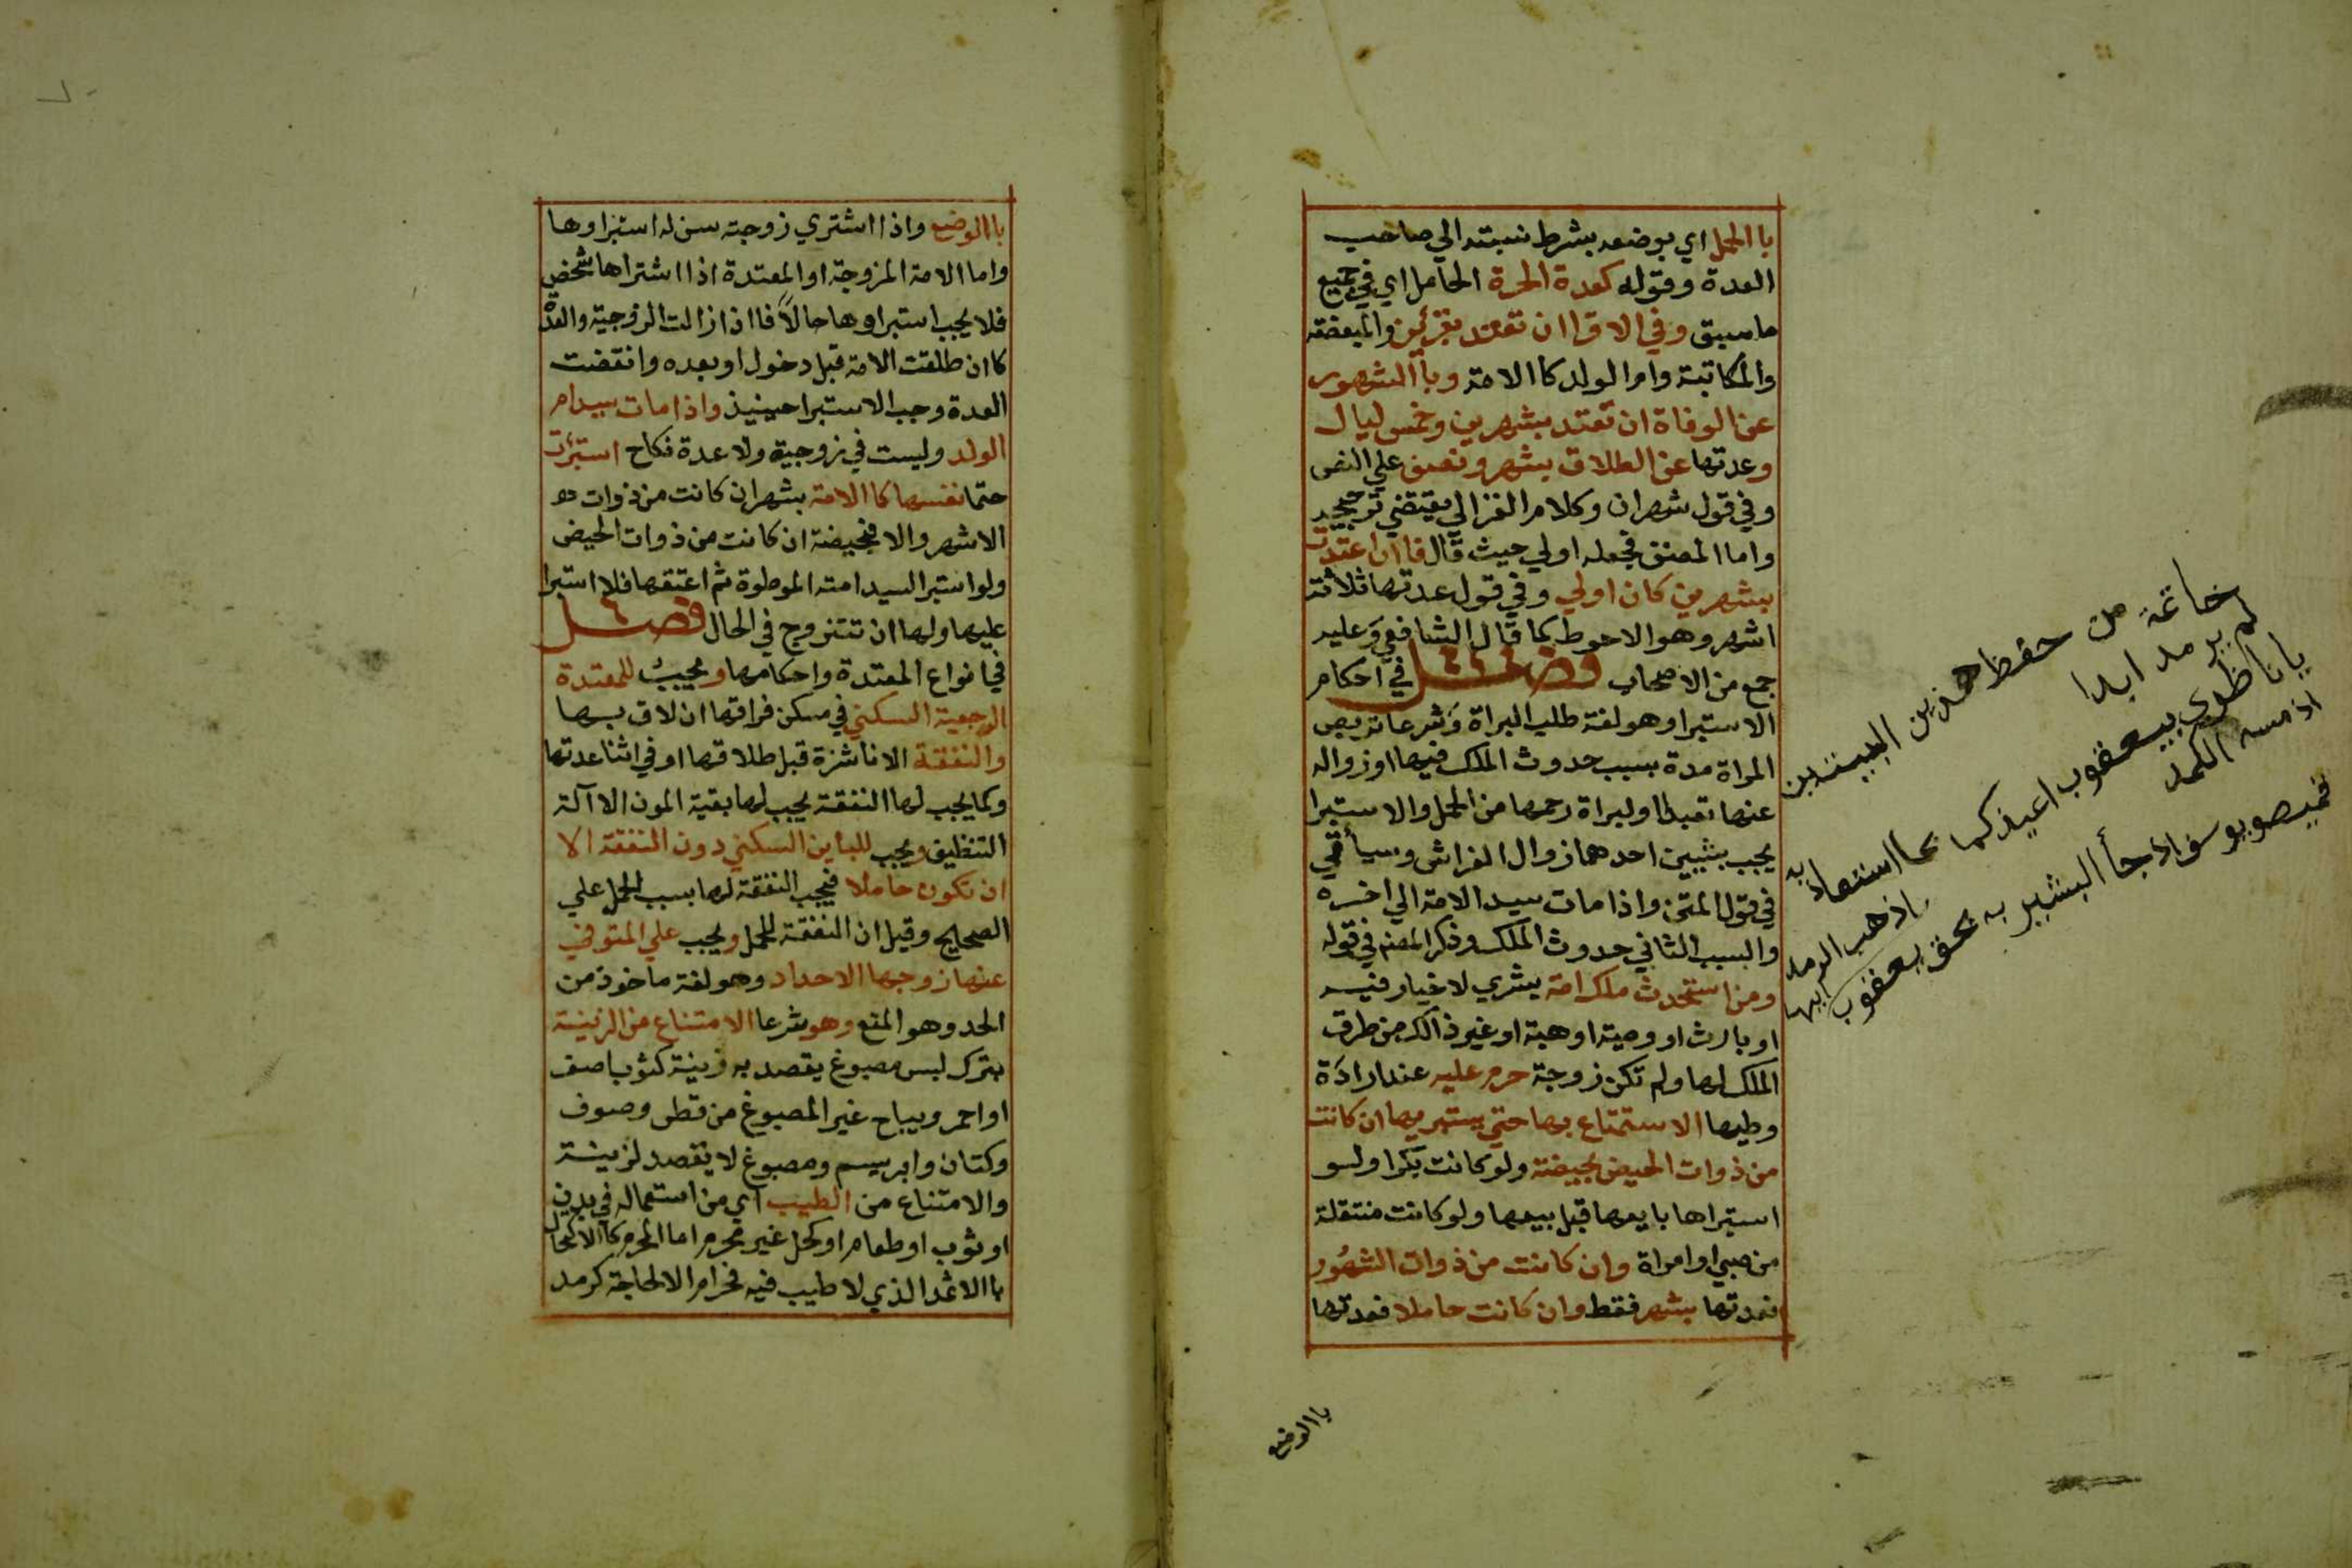 باالحمل اي بوضعه بشرط نسبته الي صاحب
العدة وقوله كعدة الحرة الحامل اي في جميع
ما سبق وفي الاقرا ان تعتد بقرئين والمبعضة
والمكاتبة وام الولد كاالامة وباالشهور
عن الوفاة ان تعتد بشهرين وخمس ليال
وعدتها عن الطلاق بشهر ونصف علي النص
وفي قول شهران وكلام الغزالي يقتضي ترجيحه
واما المصنف فجعله اولي حيث قال فاان اعتدت
بشهرين كان اولي وفي قول عدتها ثلاثة
اشهر وهو الاحوط كما قال الشافعي وعليه
جمع من الاصحاب فصل في احكام
الاستبرا وهو لغة طلب البراة وشرعا تربص
المراة مدة بسبب حدوث الملك فيها او زواله
عنها تعبدا او لبراة رحمها من الحمل والاستبرا
يجب بشيين احدهما زوال الفراش وسيأتي
في قول المتن واذا مات سيد الامة الي اخره
والسبب الثاني حدوث الملك وذكر المصنف في قوله
ومن استحدث ملك امة بشري لا خيار فيه
او بارث او وصية او هبة او غير ذالك من طرق
الملك لها ولم تكن زوجة حرم عليه عند ارادة
وطيها الاستمتاع بها حتي يستبريها ان كانت
من ذوات الحيض بحيضة ولو كانت بكرا ولو
استبراها بايعها قبل بيعها ولو كانت منتقلة
من صبي او امراة وان كانت من ذوات الشهور
فعدتها بشهر فقط وان كانت حاملا فعدتها
باالوضع
خاتمة من حفظ هذين البيتين
لم يرمد ابدا
يا ناظري بيعقوب اعيذكما بما استعاذ به
اذ مسه الكمد
قميص يوسف اذ جأ البشير به بحق يعقوب
اذهب الرمد
ايها
باالوضع واذا اشتري زوجته سن له استبراوها
واما الامة المزوجة او المعتدة اذا اشتراها شخص
فلا يجب استبراوها حالاً فااذا زالت الزوجية والعدة
كاان طلقت الامة قبل دخول او بعده وانقضت
العدة وجب الاستبرا حينيذ واذا مات سيد ام
الولد وليست في زوجية ولا عدة نكاح استبرئت
حتما نفسها كاالامة بشهر ان كانت من ذوات
الاشهر والا فبحيضة ان كانت من ذوات الحيض
ولو استبرا السيد امته الموطوة ثم اعتقها فلا استبرا
عليها ولها ان تتزوج في الحال فصل
في انواع المعتدة واحكامها ويجبُ للمعتدة
الرجعية السكني في مسكن فراقها ان لاق بها
والنفقة الا ناشزة قبل طلاقها او في اثنا عدتها
وكما يجب لها النفقة يجب لها بقية المون الا آلة
التنظيف ويجب للباين السكني دون النفقة الا
ان تكون حاملا فيجب النفقة لها بسبب الحمل علي
الصحيح وقيل ان النفقة للحمل ويجب علي المتوفي
عنها زوجها الاحداد وهو لغة ماخوذ من
الحد وهو المنع وهو شرعا الامتناع من الزينة
بترك لبس مصبوغ يقصد به زينة كثوب اصفر
او احمر ويباح غير المصبوغ من قطن وصوف
وكتان وابريسم ومصبوغ لا يقصد لزينة
والامتناع من الطيب اي من استعماله في بدن
او ثوب او طعام او كحل غير محرم اما المحرم كاالاكتحال
باالاثمد الذي لا طيب فيه فحرام الا لحاجة كرمد